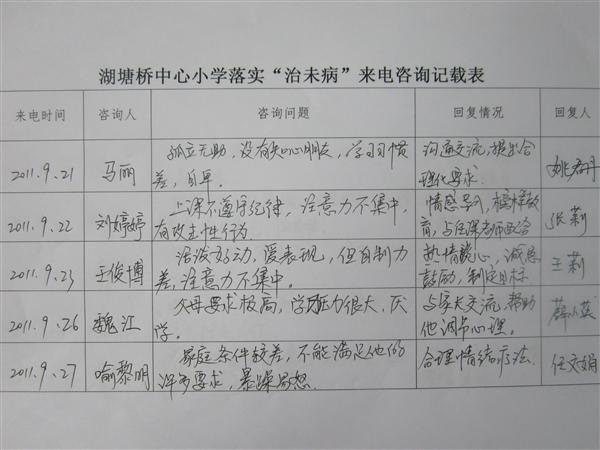 湖塘桥中心小学落实“治未病”来电咨询记载表
来电时间 咨询人 咨询问题 回复情况 回复人
2011.9.21 马丽 孤立无助，没有知心朋友，学习习惯 沟通交流，提出合 姚君丹
差，自卑。 理化要求.
2011.9.22 刘婷婷 上课不遵守纪律，注意力不集中， 情感导入，榜样教 张莉
有攻击性行为. 育，与任课老师配合
2011.9.23 王俊博 活泼好动，爱表现，但自制力 热情暖心，诚恳 王莉
差，注意力不集中。 鼓励，制定目标
2011.9.26 魏江 父母要求极高，学习压力很大，厌 与家长交流，帮助 薛小英
学。 他调节心理。
2011.9.27 喻黎明 家庭条件较差，不能满足他的 合理情绪疗法. 任文娟
许多要求，暴躁易怒.